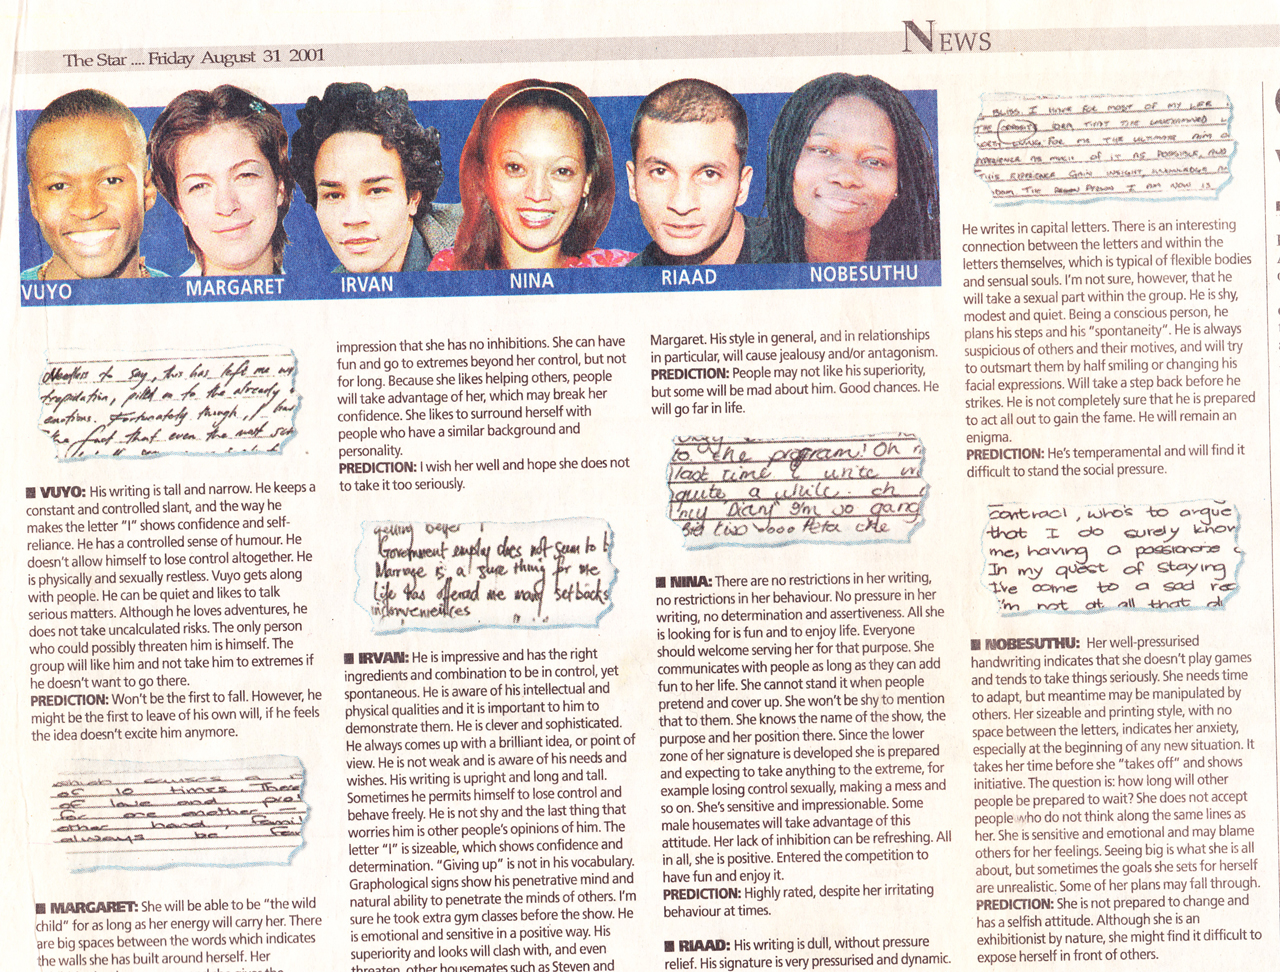 The Star .... Friday August 31 2001
NEWS
VUYO
MARGARET
IRVAN
NINA
RIAAD
NOBESUTHU
Needless to say, this has left me
trepidation, piled on to the already
emotions. Fortunately though, I
the fact that even the most
■ VUYO: His writing is tall and narrow. He keeps a
constant and controlled slant, and the way he
makes the letter "I" shows confidence and self-
reliance. He has a controlled sense of humour. He
doesn't allow himself to lose control altogether. He
is physically and sexually restless. Vuyo gets along
with people. He can be quiet and likes to talk
serious matters. Although he loves adventures, he
does not take uncalculated risks. The only person
who could possibly threaten him is himself. The
group will like him and not take him to extremes if
he doesn't want to go there.
PREDICTION: Won't be the first to fall. However, he
might be the first to leave of his own will, if he feels
the idea doesn't excite him anymore.
which causes a
of 10 times. There
of love and
for one another
other hand,
always be
■ MARGARET: She will be able to be "the wild
child" for as long as her energy will carry her. There
are big spaces between the words which indicates
the walls she has built around herself. Her
impression that she has no inhibitions. She can have
fun and go to extremes beyond her control, but not
for long. Because she likes helping others, people
will take advantage of her, which may break her
confidence. She likes to surround herself with
people who have a similar background and
personality.
PREDICTION: I wish her well and hope she does not
to take it too seriously.
getting
Government employ does not seem to
Marriage is a sure thing for me
Life has offered me many setbacks
inconveniences
■ IRVAN: He is impressive and has the right
ingredients and combination to be in control, yet
spontaneous. He is aware of his intellectual and
physical qualities and it is important to him to
demonstrate them. He is clever and sophisticated.
He always comes up with a brilliant idea, or point of
view. He is not weak and is aware of his needs and
wishes. His writing is upright and long and tall.
Sometimes he permits himself to lose control and
behave freely. He is not shy and the last thing that
worries him is other people's opinions of him. The
letter "I" is sizeable, which shows confidence and
determination. "Giving up" is not in his vocabulary.
Graphological signs show his penetrative mind and
natural ability to penetrate the minds of others. I'm
sure he took extra gym classes before the show. He
is emotional and sensitive in a positive way. His
superiority and looks will clash with, and even
threaten, other housemates such as Steven and
Margaret. His style in general, and in relationships
in particular, will cause jealousy and/or antagonism.
PREDICTION: People may not like his superiority,
but some will be mad about him. Good chances. He
will go far in life.
to the program! Oh
last time I write
quite a while.
my Diary I'm so
■ NINA: There are no restrictions in her writing,
no restrictions in her behaviour. No pressure in her
writing, no determination and assertiveness. All she
is looking for is fun and to enjoy life. Everyone
should welcome serving her for that purpose. She
communicates with people as long as they can add
fun to her life. She cannot stand it when people
pretend and cover up. She won't be shy to mention
that to them. She knows the name of the show, the
purpose and her position there. Since the lower
zone of her signature is developed she is prepared
and expecting to take anything to the extreme, for
example losing control sexually, making a mess and
so on. She's sensitive and impressionable. Some
male housemates will take advantage of this
attitude. Her lack of inhibition can be refreshing. All
in all, she is positive. Entered the competition to
have fun and enjoy it.
PREDICTION: Highly rated, despite her irritating
behaviour at times.
■ RIAAD: His writing is dull, without pressure
relief. His signature is very pressurised and dynamic.
BLISS I HAVE FOR MOST OF MY LIFE
THE OPPOSIT IDEA THAT THE UNEXAMINED
WORTH LIVING FOR ME THE ULTIMATE AIM
EXPERIENCE AS MUCH OF IT AS POSSIBLE, AND
THIS EXPERIENCE GAIN INSIGHT KNOWLEDGE
THE PERSON I AM NOW IS
He writes in capital letters. There is an interesting
connection between the letters and within the
letters themselves, which is typical of flexible bodies
and sensual souls. I'm not sure, however, that he
will take a sexual part within the group. He is shy,
modest and quiet. Being a conscious person, he
plans his steps and his "spontaneity". He is always
suspicious of others and their motives, and will try
to outsmart them by half smiling or changing his
facial expressions. Will take a step back before he
strikes. He is not completely sure that he is prepared
to act all out to gain the fame. He will remain an
enigma.
PREDICTION: He's temperamental and will find it
difficult to stand the social pressure.
contract, who's to argue
that I do surely know
me, having a passionate
In my quest of staying
I've come to a sad
I'm not at all that
■ NOBESUTHU: Her well-pressurised
handwriting indicates that she doesn't play games
and tends to take things seriously. She needs time
to adapt, but meantime may be manipulated by
others. Her sizeable and printing style, with no
space between the letters, indicates her anxiety,
especially at the beginning of any new situation. It
takes her time before she "takes off" and shows
initiative. The question is: how long will other
people be prepared to wait? She does not accept
people who do not think along the same lines as
her. She is sensitive and emotional and may blame
others for her feelings. Seeing big is what she is all
about, but sometimes the goals she sets for herself
are unrealistic. Some of her plans may fall through.
PREDICTION: She is not prepared to change and
has a selfish attitude. Although she is an
exhibitionist by nature, she might find it difficult to
expose herself in front of others.